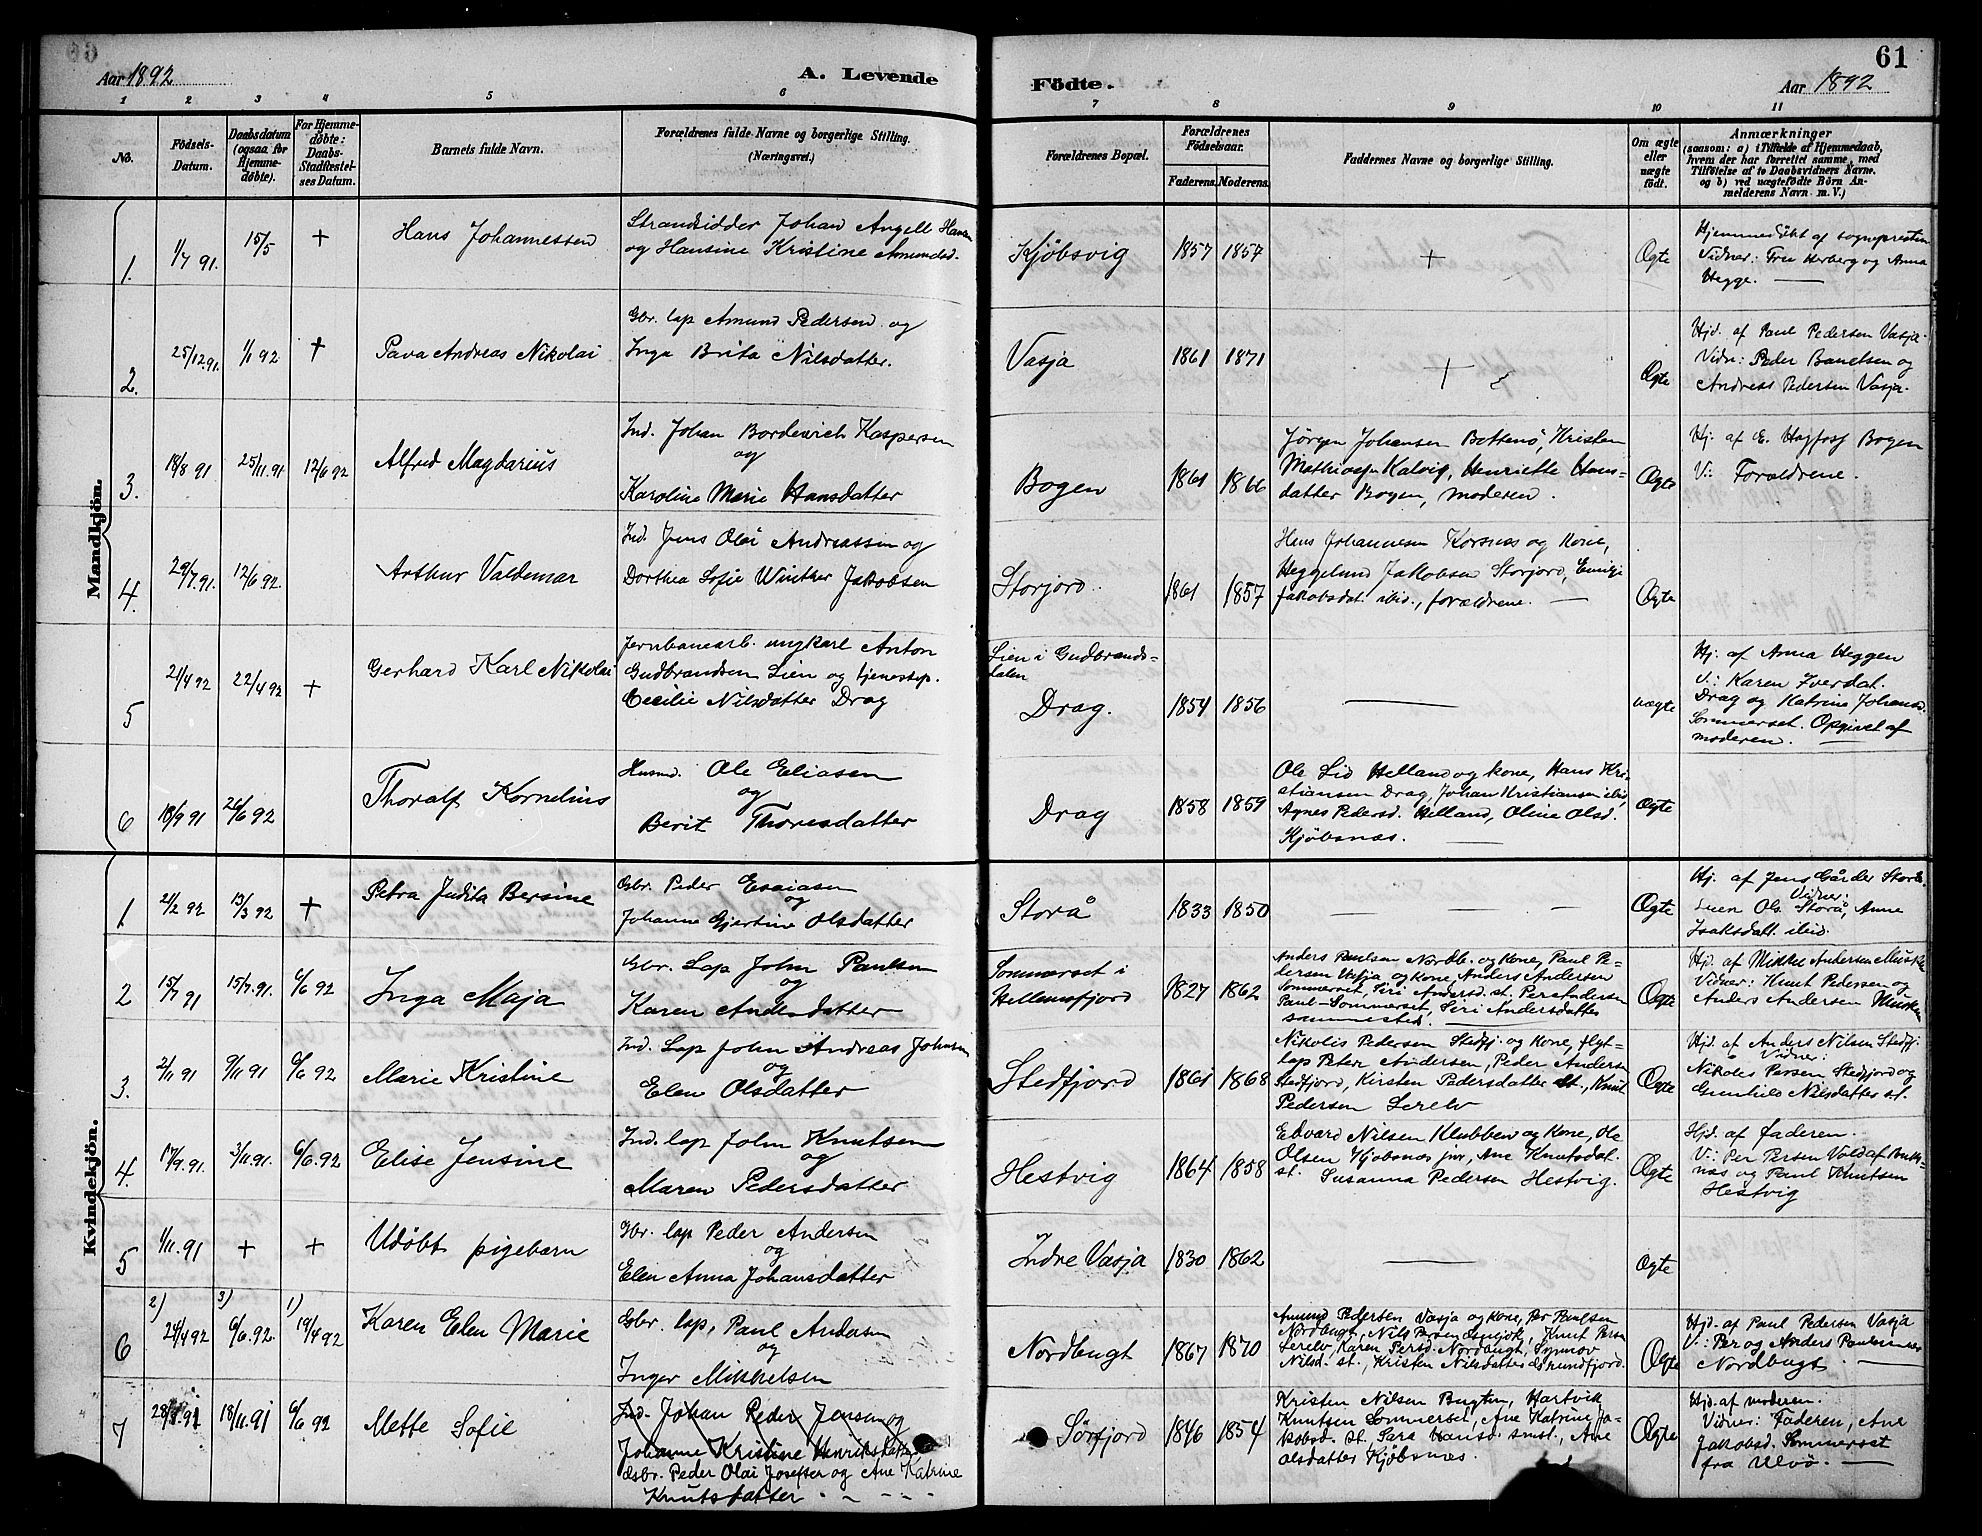 61
Aar 1892
A. Levende
Födte.
Aar 1892
1 2 3 4 5 6 7 8 9 10 11
No.
Födsels-
Datum.
Daabsdatum
(ogsaa for
Hjemme-
døbte).
For Hjemme-
døbte:
Daabs-
Stadfæstel-
ses Datum.
Barnets fulde Navn.
Forældrenes fulde Navne og borgerlige Stilling.
(Næringsvei.)
Forældrenes Bopæl.
Forældrenes
Födselsaar.
Faderens. Moderens.
Faddernes Navne og borgerlige Stilling.
Om ægte
eller
uægte
födt.
Anmærkninger
(saasom: a) i Tilfælde af Hjemmedaab,
hvem der har forrettet samme, med
Tilföielse af to Daabsvidners Navne.
og b) ved uægtefödte Börn An-
melderens Navn m. V.)
Mandkjön.
1. 1/7 91. 15/5 + Hans Johannessen
Strandsidder Johan Angell Hansen
og Hansine Kristine Amundsd.
Kjöbsvig 1857 1857 + Ægte
Hjemmedöbt af sognepresten
Vidner: Fru Herberg og Anna
Hegge. —
2. 25/12 91. 1/1 92 + Pava Andreas Nikolai
Gbr. lap Amund Pedersen og
Inga Brita Nilsdatter.
Vasja 1861 1871 + Ægte
Hjd. af Paul Pedersen Vasja.
Vidne: Peder Banelsen og
Andreas Pedersen Vasja.
3. 18/8 91 25/11 91 12/6 92 Alfred Magdarius
Ind. Johan Bordewich Kaspersen
og
Karoline Marie Hansdatter
Bogen 1861 1866
Jørgen Johansen Bottenö, Kristen
Mathiasen Kalvig, Henriette Hans-
datter Bogen, moderen.
Ægte
Hj. af E. Hagfoss Bogen
V: Forældrene.
4. 29/7 91. 12/6 92. Arthur Valdemar
Ind. Jens Olai Andreassen og
Dorthea Sofie Winther Jakobsen
Storjord. 1861 1857
Hans Johannesen Korsnæs og kone,
Heggelund Jakobsen Storjord, Emilje
Jakobsdat. ibid., forældrene. —
Ægte
5 21/4 92 22/4 92 + Gerhard Karl Nikolai
Jernbanearb. ungkarl Anton
Gudbrandsen Lien og tjenestep.
Cecilie Nilsdatter Drag
Lien i Gudbrands-
dalen
Drag. 1854 1856 — uægte
Hj. af Anna Heggen
V.: Karen Iverdat.
Drag og Katrine Johansd.
Sommerset. Opgivet af
moderen. —
6 18/9 91 26/6 92 Thoralf Kornelius
Husmd. Ole Eliasen
og
Berit Thoresdatter
Drag 1858 1859
Ole Lid Helland og kone, Hans Kri-
stiansen Drag, Johan Kristiansen ibid,
Agnes Pedersd. Helland, Oline Olsd.
Kjöbsnæs. —
Ægte
Kvindekjön.
1 21/2 92 13/3 92 + Petra Judita Bersine
Gbr. Peder Esaiasen
og
Johanne Gjertine Olsdatter
Storå 1833 1850 — — — Ægte
Hj. af Jens Gårder Storå.
Vidner:
Ols. Storå, Anne
Isaksdatt. ibid.
2 15/7 91 15/7. 91. 6/6 92 Inga Maja
Gbr. Lap John Paulsen
og
Karen Andersdatter
Sommerset i
Hellemofjord 1827 1862
Anders Paulsen Nordb. og kone, Paul Pe-
dersen Vasja og kone, Anders Andersen
Sommerset, Siri Andersd. st. Per Andersen
Paul-Sommerset, Siri Andersdatter
sammested.
Ægte
Hjd. af Mikkel Andersen Musken
Vidner: Knut Pedersen og
Anders Andersen Musken
3. 2/11 91 9/11 91 6/6 92 Marie Kristine
Ind. Lap John Andreas Johnsen
og
Elen Olsdatter
Stedfjord 1861 1868
Nikolis Pedersen Stedfj. og kone, flyt-
lap Peter Andersen, Peder Andersen
Stedfjord, Kirsten Pedersdatter st., Knut
Pedersen Lerelv
Ægte
Hjd. af Anders Nilsen Stedfj.
Vidner:
Nikolis Persen Stedfjord og
Gunhild Nilsdatter st.
4. 17/9. 91. 3/11. 91. 6/6. 92 Elise Jensine
Ind. lap John Knutsen
og
Maren Pedersdatter
Hestvig 1864 1858
Edvard Nilsen Klubben og kone, Ole
Olsen Kjöbsnæs jnr, Ane Knutsdat.
st. Susanna Pedersen Hestvig.
Ægte
Hjd. af faderen.
V: Per Persen
næs og Paul Knutsen
Hestvig
5 1/11. 91 + + Udöbt pigebarn
Gbr. lap Peder Andersen
og
Elen Anna Johansdatter
Indre Vasja 1830 1862 — Ægte
6 2) 24/4 92 3) 6/6. 92. 1) 19/4 92 Karen Elen Marie
Gbr. lap, Paul Andersen
og
Inger Mikkelsen
Nordbugt 1867 1870
Amund Pedersen Vasja og kone, Per Paulsen
Nordbugt, Nils Persen, Knut Persen
Lerelv, Karen Persd. Nordbugt, Synnöv
Nilsd. st., Kristen Nilsdatter Grundfjord.
Ægte
Hjd. af Paul Pedersen Vasja
V.: Per og Anders Paulsen
Nordbugt. —
7 28/8. 91 18/11. 91 6/6 92 Mette Sofie
Ind. Johan Peder Jensen og
Johanne Kristine Henriksdatter
Gbr. Peder Olai Josefsen og Ane Katrine
Knutsdatter. —
Sörfjord 1846 1854
Kristen Nilsen Bugten, Hartvik
Knutsen Sommerset, Ane Katrine Ja-
kobsd. st. Sara Hansd. smst., Ane
Olsdatter Kjöbsnæs.
Ægte
Hjd. af moderen.
Vidner: Faderen, Ane
Jakobsd. Sommerset
fra Ulvö. —